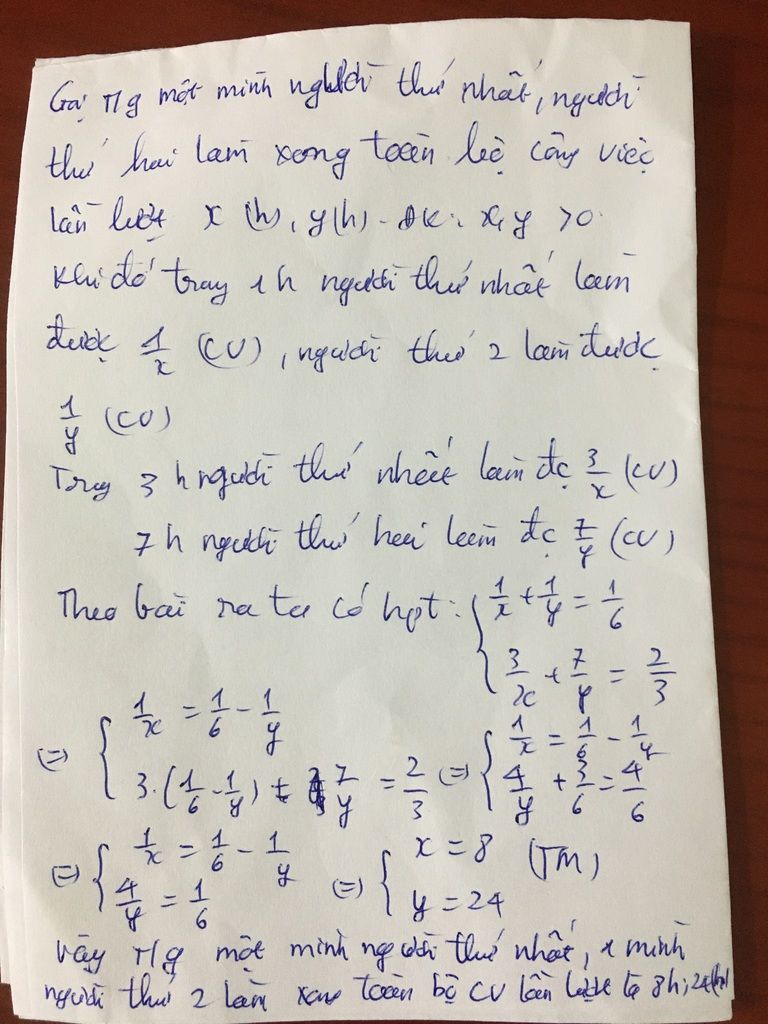 Gọi Tg một minh người thứ nhất, người
thứ hai làm xong toàn bộ công việc
lần lượt x (h), y(h) - ĐK: x, y > 0
Khi đó trong 1h người thứ nhất làm
được 1/x (CV), người thứ 2 làm được
1/y (CV)
Trong 3 h người thứ nhất làm đc 3/x (CV)
7 h người thứ hai làm đc 7/y (CV)
Theo bài ra ta có hpt: { 1/x + 1/y = 1/6
3/x + 7/y = 2/3
(=) { 1/x = 1/6 - 1/y
3.(1/6 - 1/y) + 7/y = 2/3 (=) { 1/x = 1/6 - 1/y
4/y + 3/6 = 4/6
(=) { 1/x = 1/6 - 1/y
4/y = 1/6 (=) { x = 8 (TM)
y = 24
Vậy Tg một mình người thứ nhất, 1 mình
người thứ 2 làm xong toàn bộ CV lần lượt là 8h; 24(h)